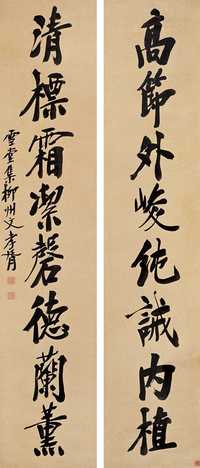 高節外峻純誠内植
清標霜潔馨德蘭薰
雪堂集柳州文孝胥